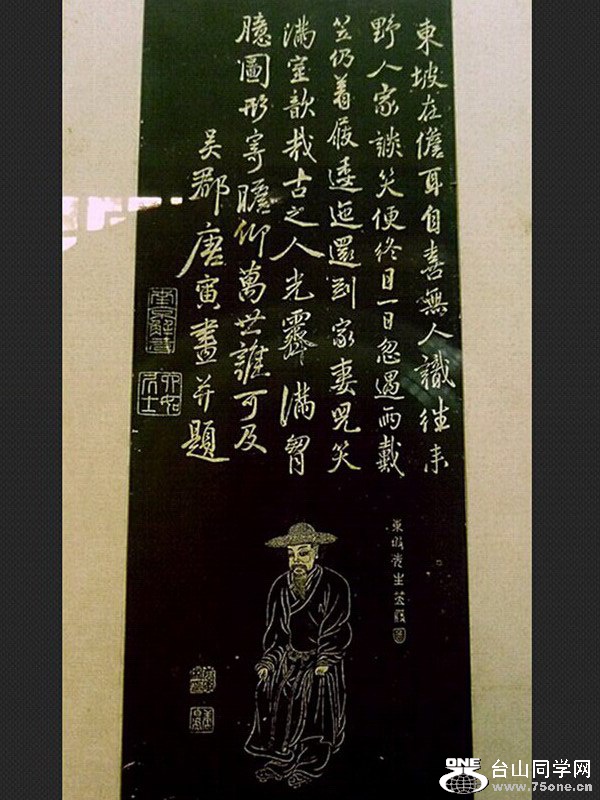 東坡在儋耳自喜無人識往来
野人家談笑便終日一日忽遇雨戴
笠仍着屐逶迤還到家妻児笑
满室歆哉古之人光霽满胷
臆圖形寄瞻仰萬世誰可及
吴郡唐寅畫并題
南京解元
六如居士
東坡先生笠屐
ONE
台山同学网
www.75one.cn